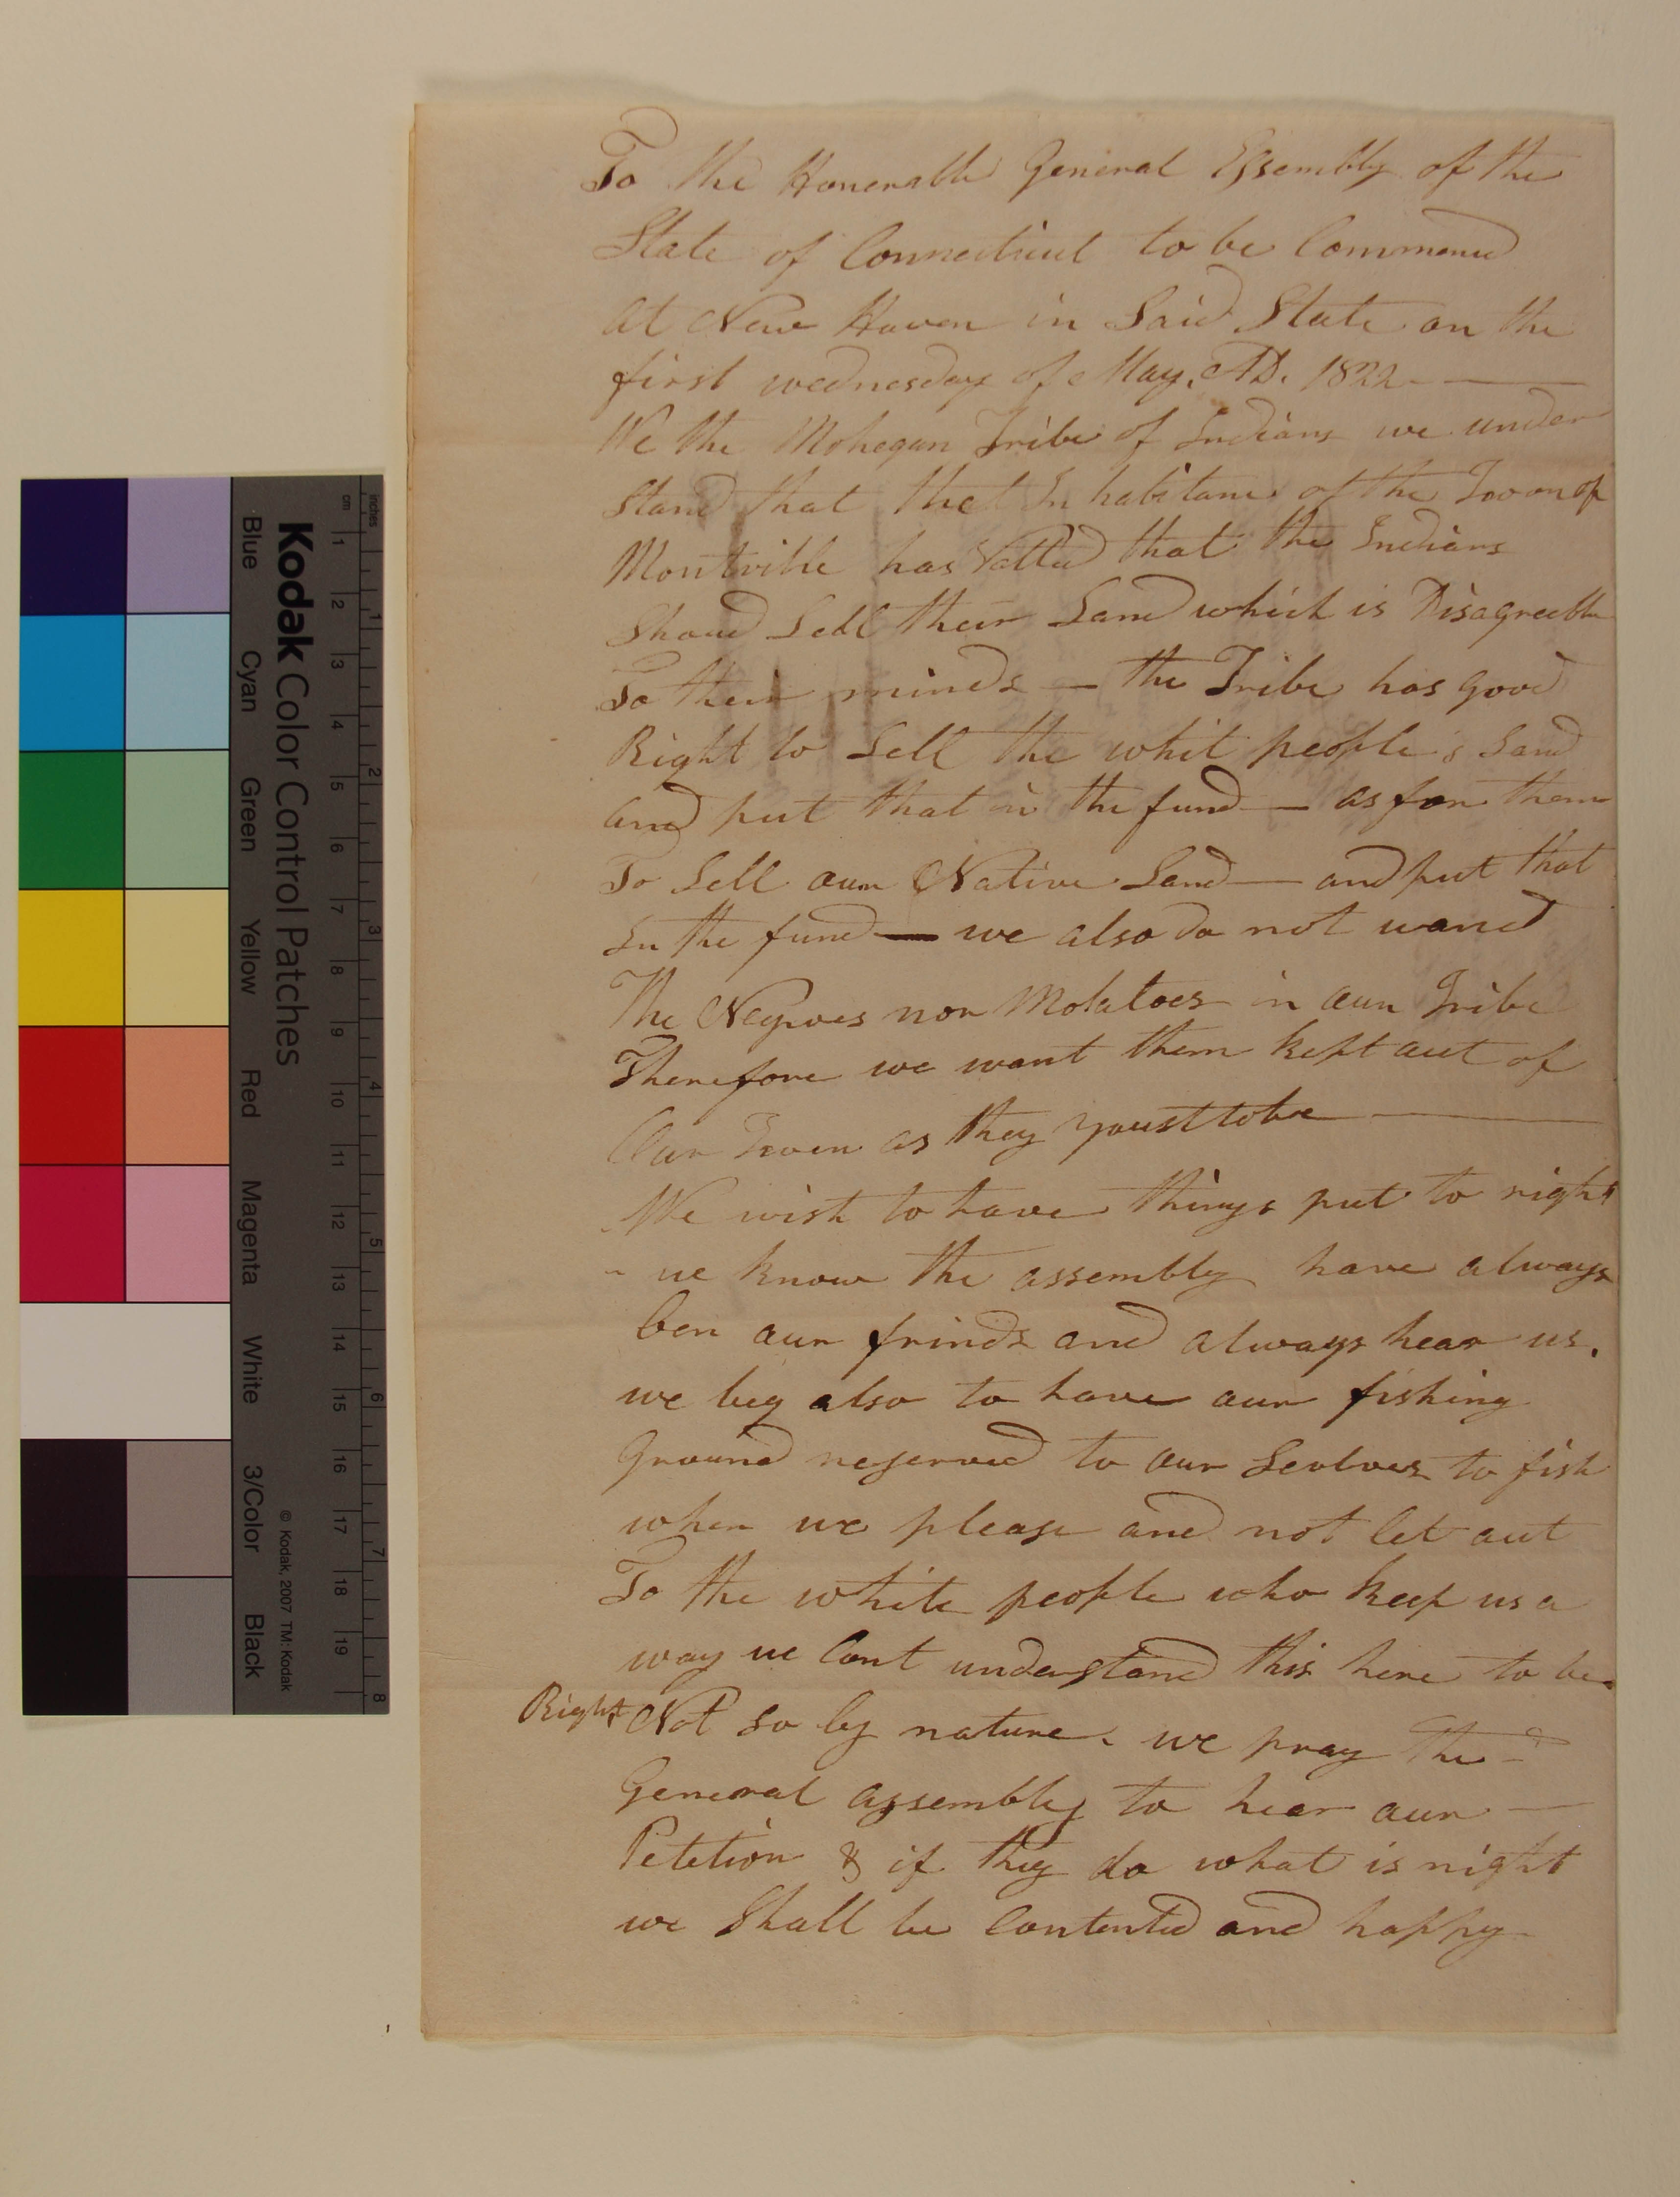 To the Honerable General Essembly of the
State of Connecticut to be Commencd
At New Haven in Said State on the
first wednesday of May, AD. 1822
We the Mohegan Tribe of Indians we under
Stand that that Inhabitanc of the Town of
Montville has Votted that the Indians
Shoud Sell their Land which is Disagreeble
To their minds — the Tribe has good
Right to Sell the whit people,s Land
and put that in the fund — as for them
To Sell aur Native Land — and put that
In the fund — we also do not wand
The Negroes nor Molatoes in aur Tribe
Therefore we want them kept aut of
Our Town as they youst to be
We wish to have things put to right
we know the assembly have always
ben aur frinds and always hear us.
we beg also to have aur fishing
Ground reserved to aur Seolves to fish
when we please and not let aut
To the white people who keep us a
way we Cant understand this here to be
Right Not so by nature. we pray the
General assembly to hear aur
Petetion & if they do what is right
we Shall be Contented and happy
Kodak Color Control Patches
© Kodak, 2007 TM: Kodak
Blue Cyan Green Yellow Red Magenta White 3/Color Black
cm 1 2 3 4 5 6 7 8 9 10 11 12 13 14 15 16 17 18 19
inches 1 2 3 4 5 6 7 8